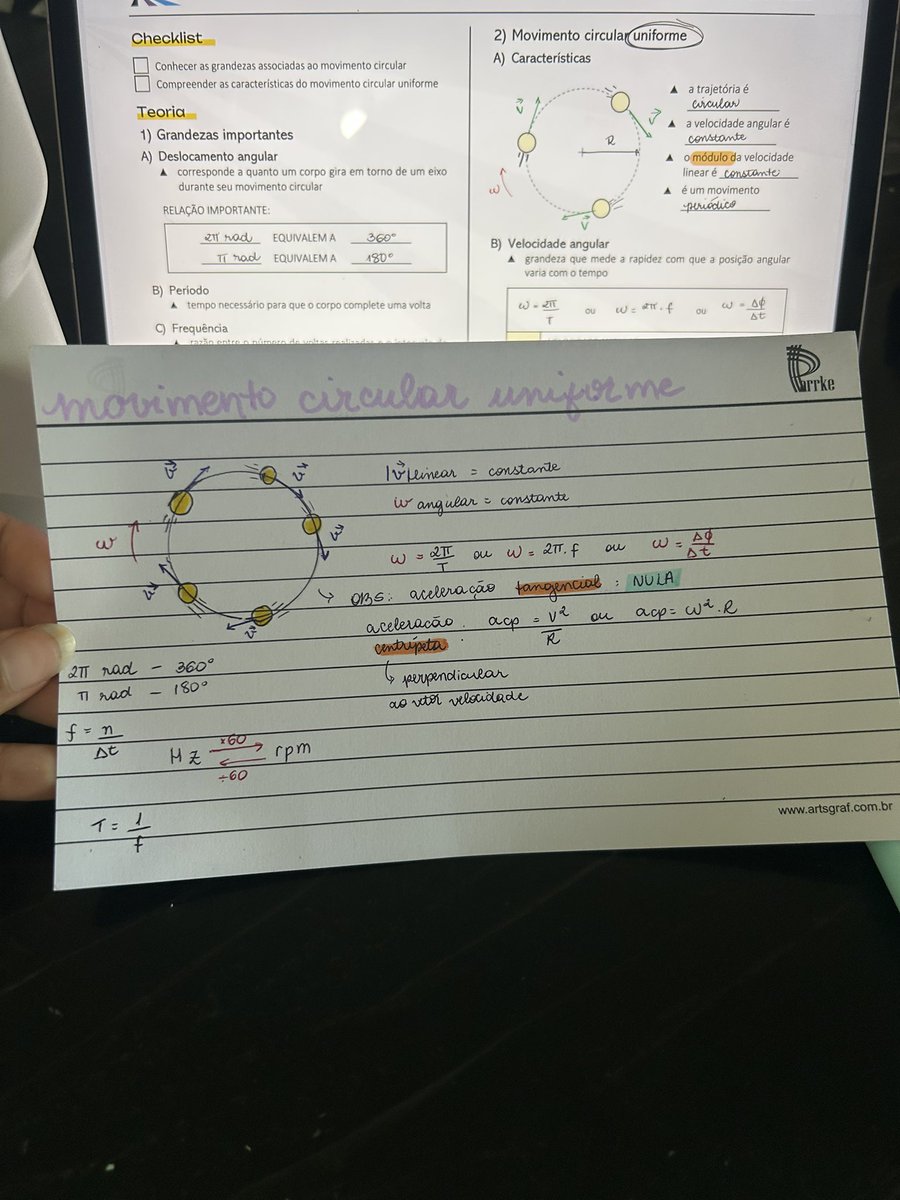 Checklist
Conhecer as grandezas associadas ao movimento circular
Compreender as características do movimento circular uniforme
Teoria
1) Grandezas importantes
A) Deslocamento angular
▲ corresponde a quanto um corpo gira em torno de um eixo
durante seu movimento circular
RELAÇÃO IMPORTANTE:
2π rad EQUIVALEM A 360°
π rad EQUIVALEM A 180°
B) Período
▲ tempo necessário para que o corpo complete uma volta
C) Frequência
2) Movimento circular uniforme
A) Características
v⃗
v⃗
R
ω
v⃗
▲ a trajetória é
circular
▲ a velocidade angular é
constante
▲ o módulo da velocidade
linear é constante
▲ é um movimento
periódico
B) Velocidade angular
▲ grandeza que mede a rapidez com que a posição angular
varia com o tempo
ω = 2π/T ou ω = 2π . f ou ω = Δϕ/Δt
Parrke
movimento circular uniforme
v⃗
v⃗
v⃗
ω
v⃗
v⃗
|v⃗| linear = constante
ω angular = constante
ω = 2π/T ou ω = 2π.f ou ω = Δϕ/Δt
OBS: aceleração tangencial : NULA
aceleração centrípeta : acp = v²/R ou acp = ω².R
↳ perpendicular
ao vetor velocidade
2π rad - 360°
π rad - 180°
f = n/Δt
Hz ×60 → rpm
← ÷60
T = 1/f
www.artsgraf.com.br